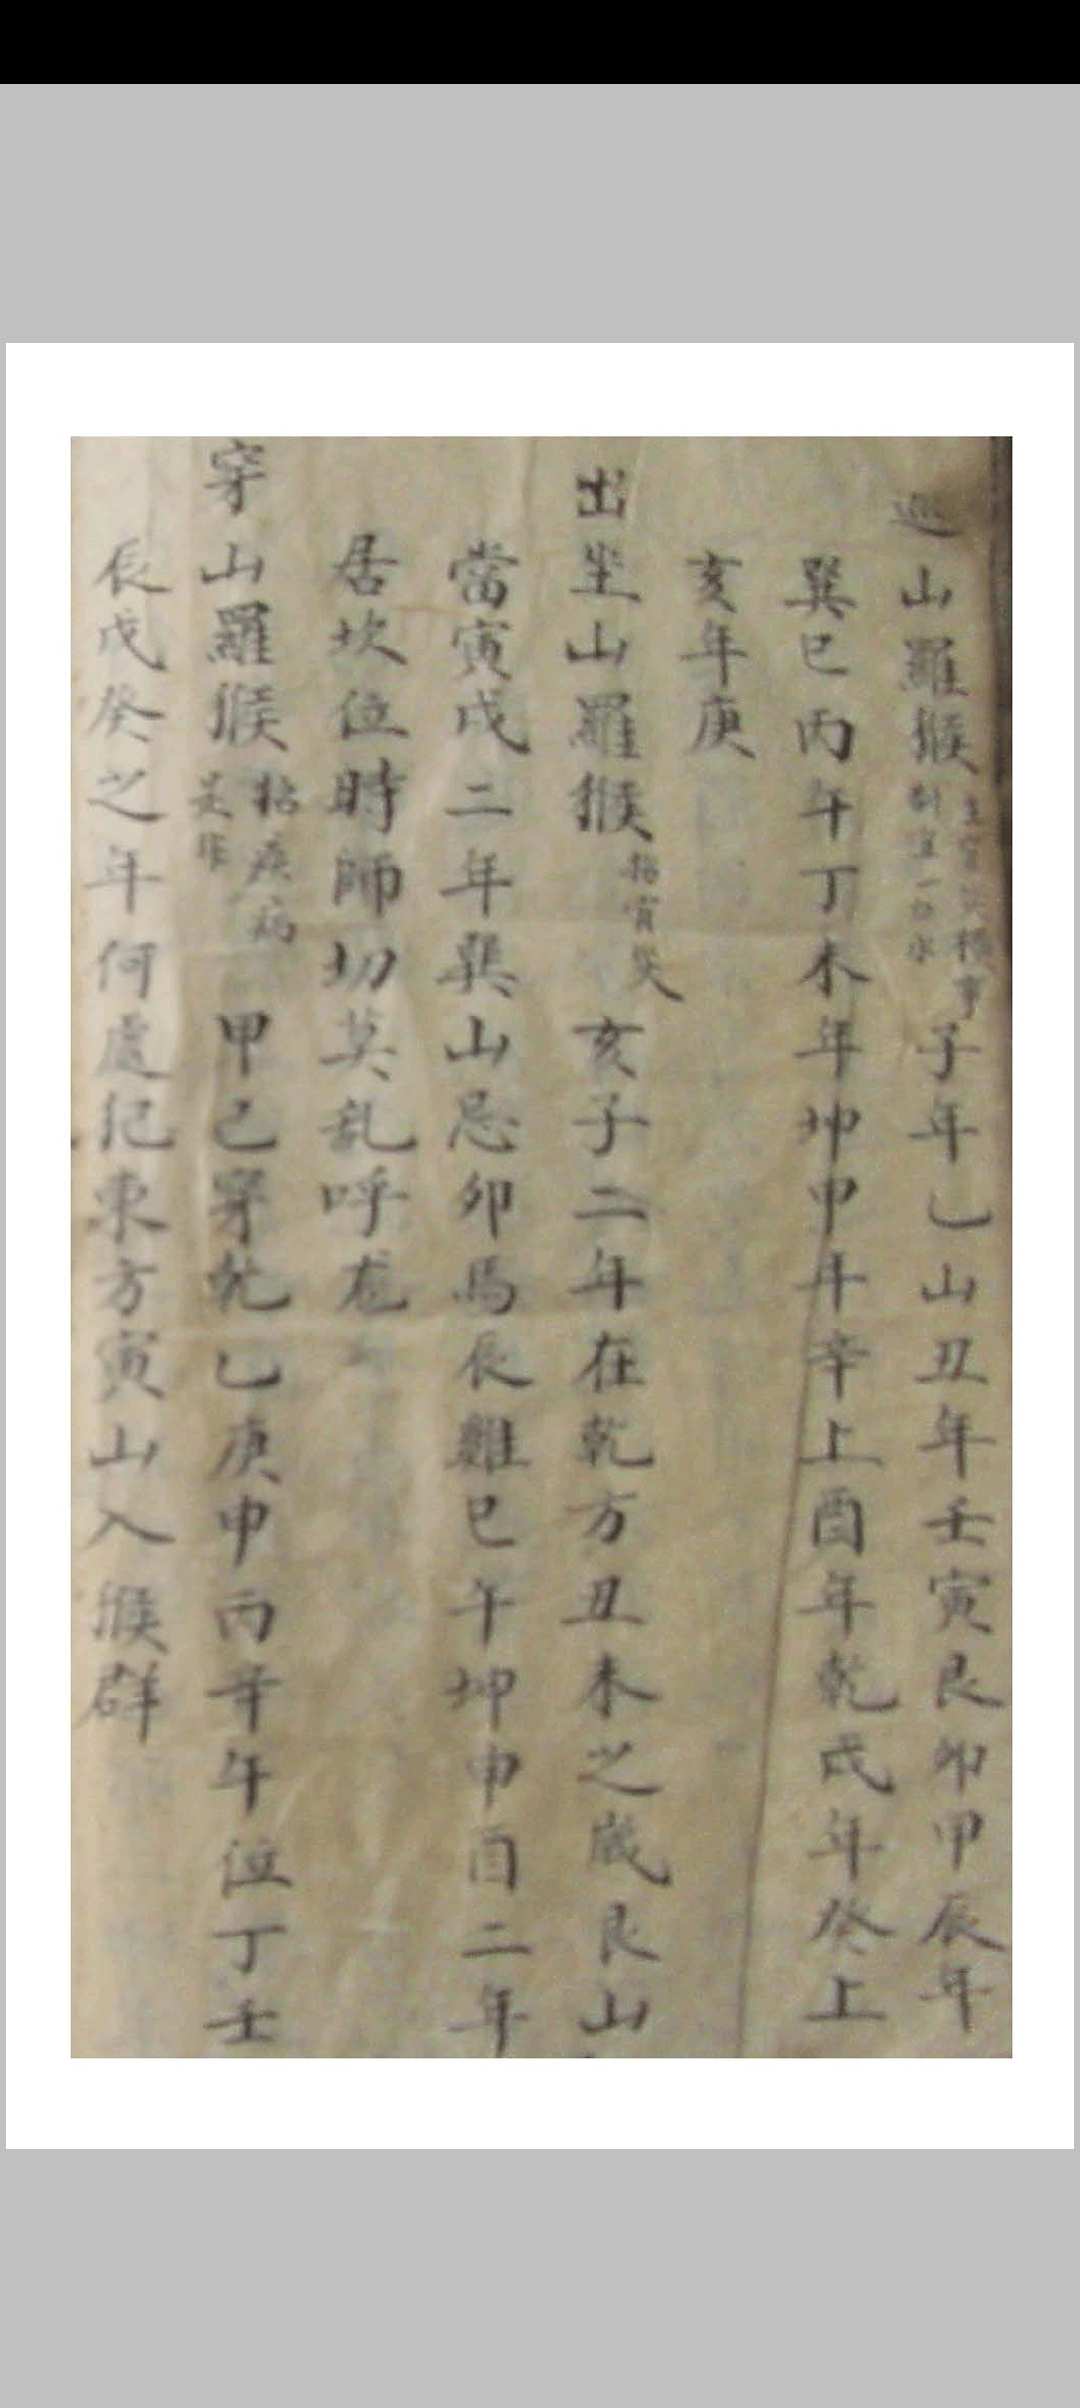 巡山羅猴 子年乙山丑年壬寅艮卯甲辰年
巽巳丙午丁未年坤申年辛上酉年乾戌年癸上
亥年庚
出坐山羅猴 招官災 亥子二年在乾方丑未之歲艮山
當寅戌二年巽山忌卯馬辰雞巳午坤申酉二年
居坎位時師切莫乱呼龙
穿山羅猴 招疾病是非 甲己穿乾乙庚申丙辛午位丁壬
辰戊癸之年何處犯東方寅山入猴群